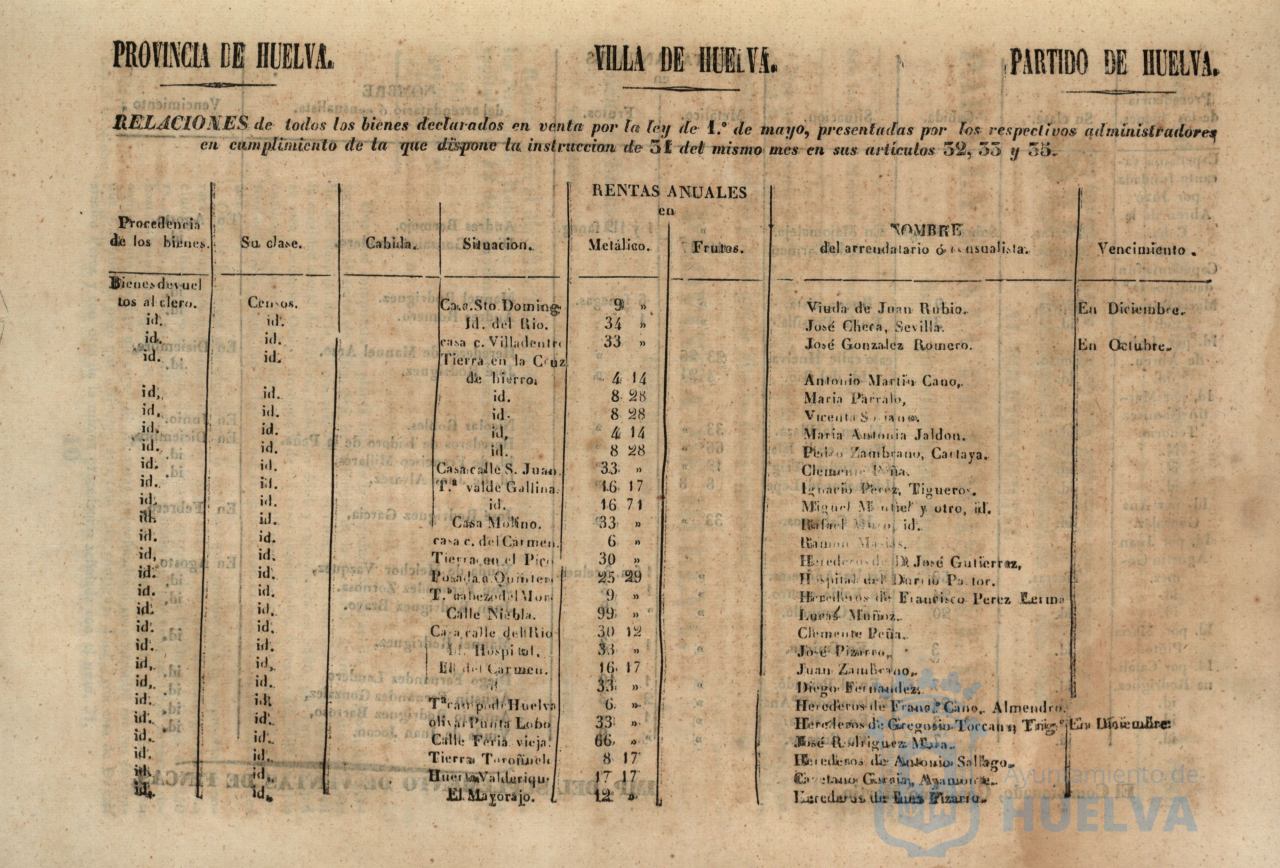 PROVINCIA DE HUELVA. VILLA DE HUELVA. PARTIDO DE HUELVA.
RELACIONES de todos los bienes declarados en venta por la ley de 1.º de mayo, presentadas por los respectivos administradores
en cumplimiento de la que dispone la instruccion de 31 del mismo mes en sus artículos 32, 33 y 35.
RENTAS ANUALES
en
Procedencia NOMBRE
de los bienes. Su clase. Cabida. Situacion. Metálico. Frutos. del arrendatario ó censualista. Vencimiento.
Bienes devuel
tos al clero. Censos. Casa Sto. Doming 9 » Viuda de Juan Rubio. En Diciembre.
id. id. Id. del Rio. 34 » José Chera, Sevilla.
id. casa c. Villadentro 33 » José Gonzalez Romero. En Octubre.
id. id. Tierra en la Cruz
de hierro. » 4 14 Antonio Martin Cano,
id, id. id. 8 28 Maria Parralo,
id. id. id. 8 28 Vicenta
id. id. id, 4 14 Maria Antonia Jaldon.
id. id. id. 8 28 Pedro Zambrano, Cartaya.
id. id. Casa calle S. Juan. 33 » Clemente Peña.
id. id. T.ª valde Gallina. 16 17 Ignacio Perez, Tigueros.
id. id. id. 16 71 Miguel Montiel y otro, id.
id. id. Casa Molino. 33 » Rafael id.
id. id. casa c. del Carmen. 6 » Ramon
id, id. Tierra en el Pico 30 » Herederos de D. José Gutierrez,
id. id. Posada a Quintero 25 29 Hospital del Pastor.
id. id. T.ª cabezo del Mor 9 » Herederos de Francisco Perez Lerma
id. id. Calle Niebla. 99 » Lucas Muñoz.
id. id. Casa calle del Rio 30 12 Clemente Peña.
id. id. Id. Hospital. 33 » José Pizarro,
id, id. Id. del Carmen. 16 17 Juan Zambrano,
id, id. id 33 » Diego Fernandez.
id. id. Tª campo de Huelva 6 » Herederos de Franc.º Cano, Almendro.
id. id. olivar Punta Lobo 33 » Herederos de Gregorio Toscano, Trig. En Diciembre.
id. id. Calle Feria vieja. 66 » José Rodriguez Mora.
id. id. Tierra Toroñuelo 8 17 Herederos de Antonio Sallago.
id. id. Huerta Valderique 17 17 Cayetano Garcia, Ayamonte.
id. id. El Mayorajo. 12 » Herederos de Luis Pizarro.
Ayuntamiento de
HUELVA